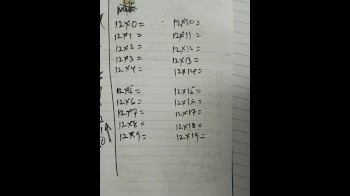 Math
12×0= 12×10=
12×1= 12×11=
12×2= 12×12=
12×3= 12×13=
12×4= 12×14=
12×5= 12×15=
12×6= 12×16=
12×7= 12×17=
12×8= 12×18=
12×9= 12×19=